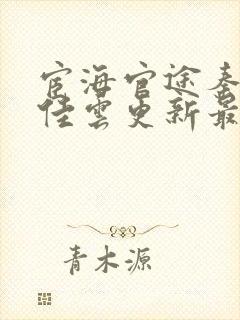 宦海官途秦
佳雲更新最
青木源